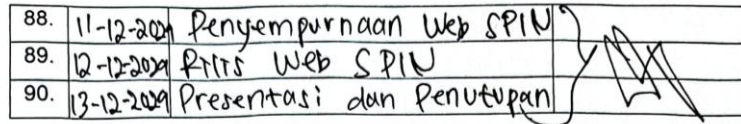 88. 11-12-2024 Penyempurnaan Web SPIN
89. 12-12-2024 Rilis Web SPIN
90. 13-12-2024 Presentasi dan Penutupan